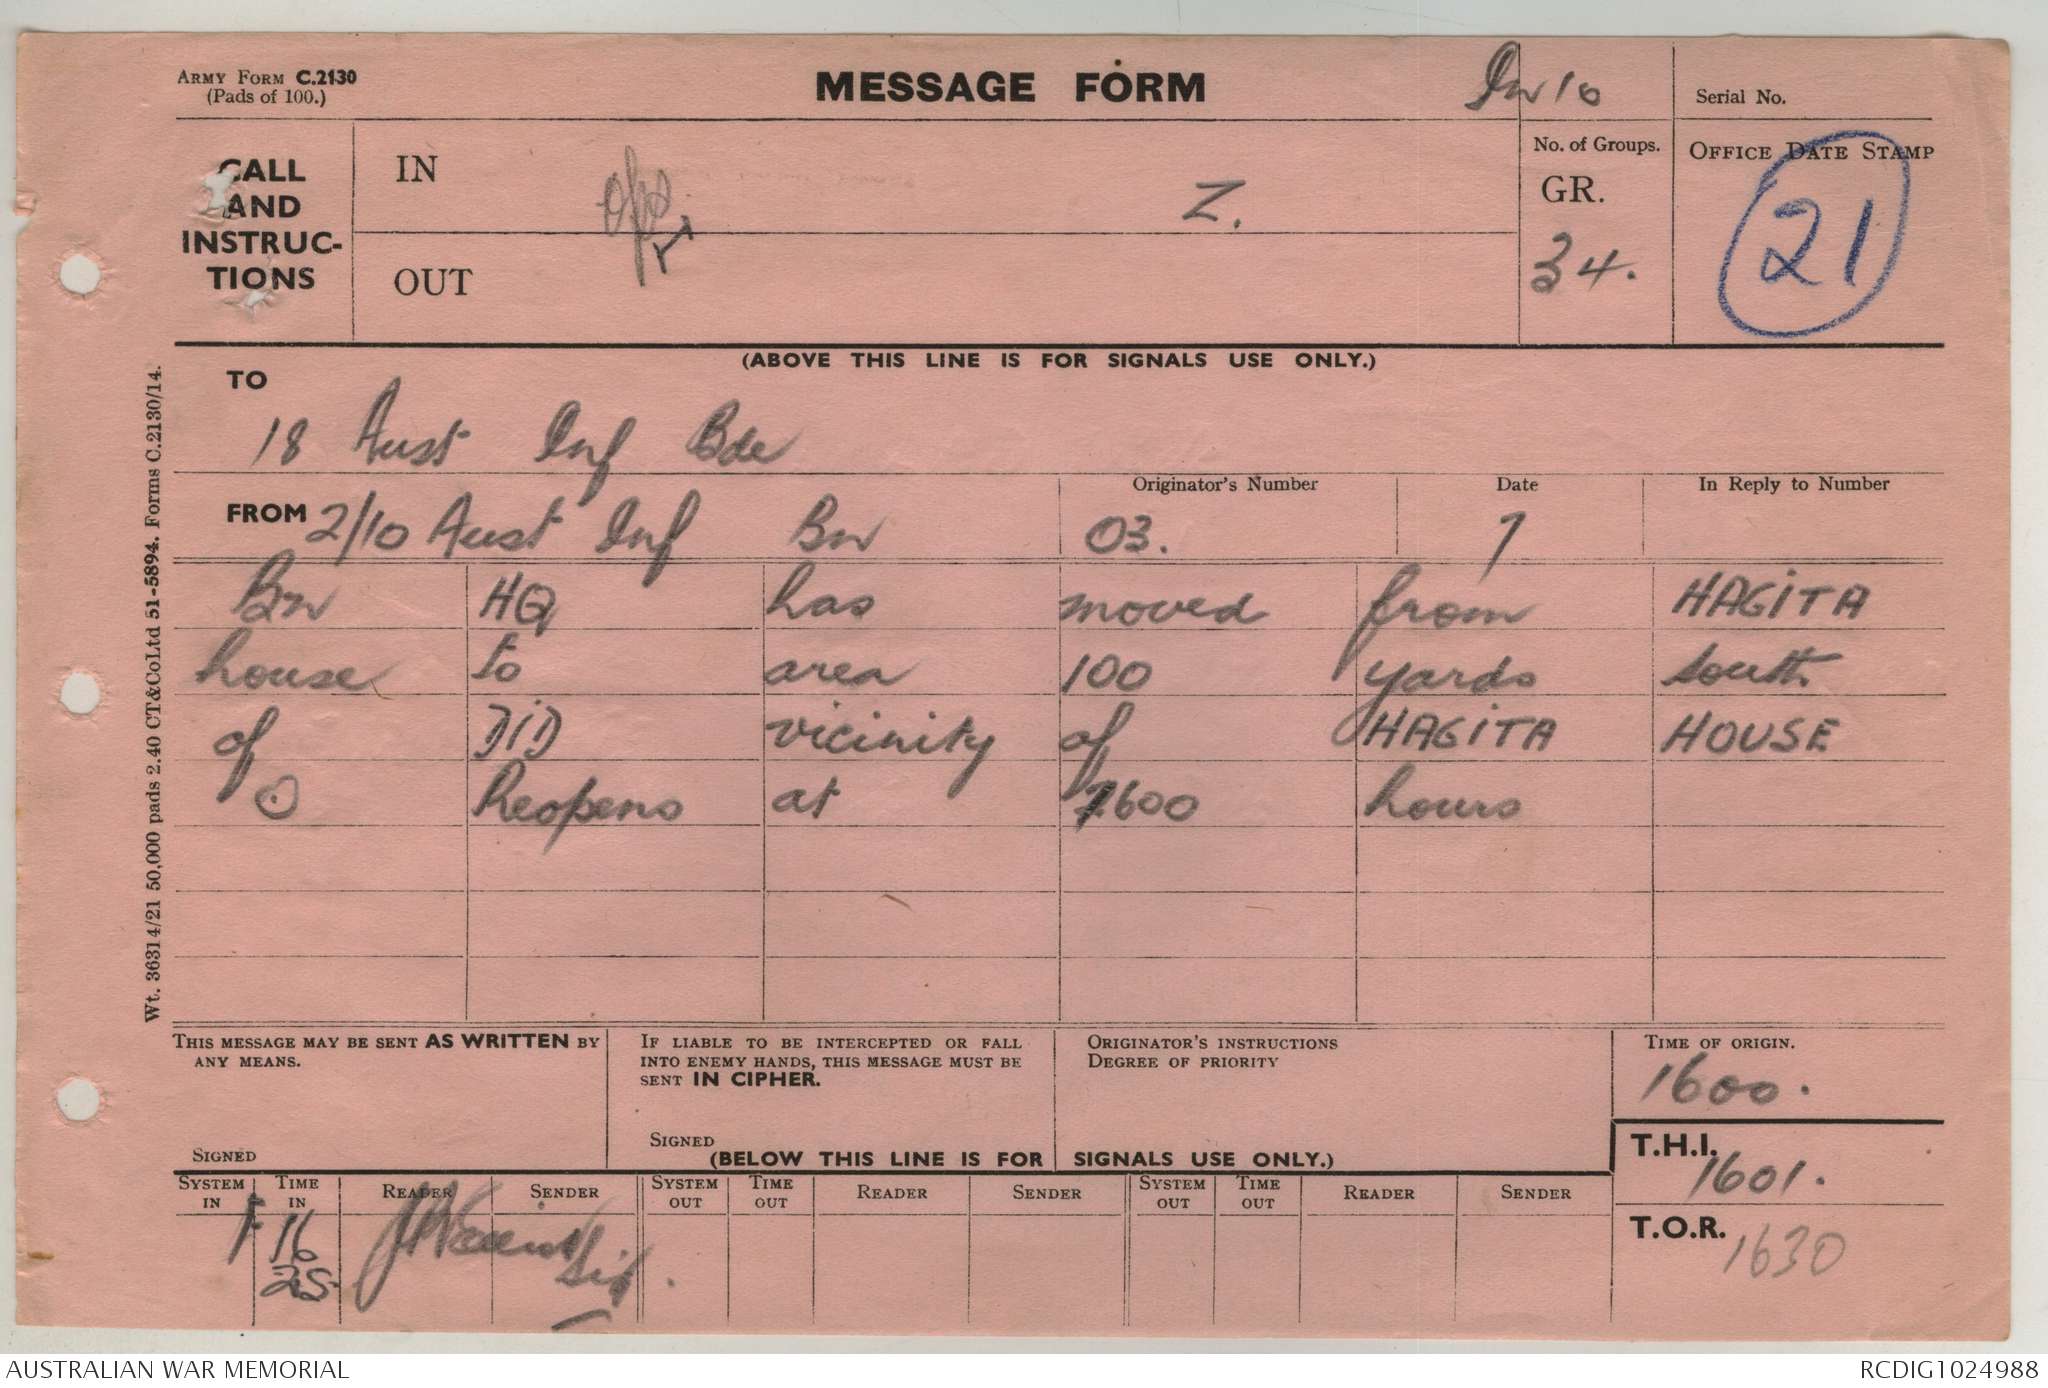 ARMY FORM C.2130
(Pads of 100.)
MESSAGE FORM
In 10
Serial No.
CALL
AND
INSTRUC-
TIONS
IN
Ops
Z.
OUT
No. of Groups.
GR.
34.
OFFICE DATE STAMP
21
(ABOVE THIS LINE IS FOR SIGNALS USE ONLY.)
TO
18 Aust Inf Bde
FROM 2/10 Aust Inf Bn
Originator's Number
03.
Date
7
In Reply to Number
Bn HQ has moved from HAGITA
house to area 100 yards south
of DID vicinity of HAGITA HOUSE
O Reopens at 1600 hours
Wt. 36314/21 50,000 pads 2.40 CT&CoLtd 51-5894. Forms C.2130/14.
THIS MESSAGE MAY BE SENT AS WRITTEN BY
ANY MEANS.
SIGNED
IF LIABLE TO BE INTERCEPTED OR FALL
INTO ENEMY HANDS, THIS MESSAGE MUST BE
SENT IN CIPHER.
SIGNED
ORIGINATOR'S INSTRUCTIONS
DEGREE OF PRIORITY
TIME OF ORIGIN.
1600.
(BELOW THIS LINE IS FOR SIGNALS USE ONLY.)
T.H.I.
1601.
T.O.R.
1630
SYSTEM IN TIME IN READER SENDER SYSTEM OUT TIME OUT READER SENDER SYSTEM OUT TIME OUT READER SENDER
F 16
25
Sig.
AUSTRALIAN WAR MEMORIAL
RCDIG1024988